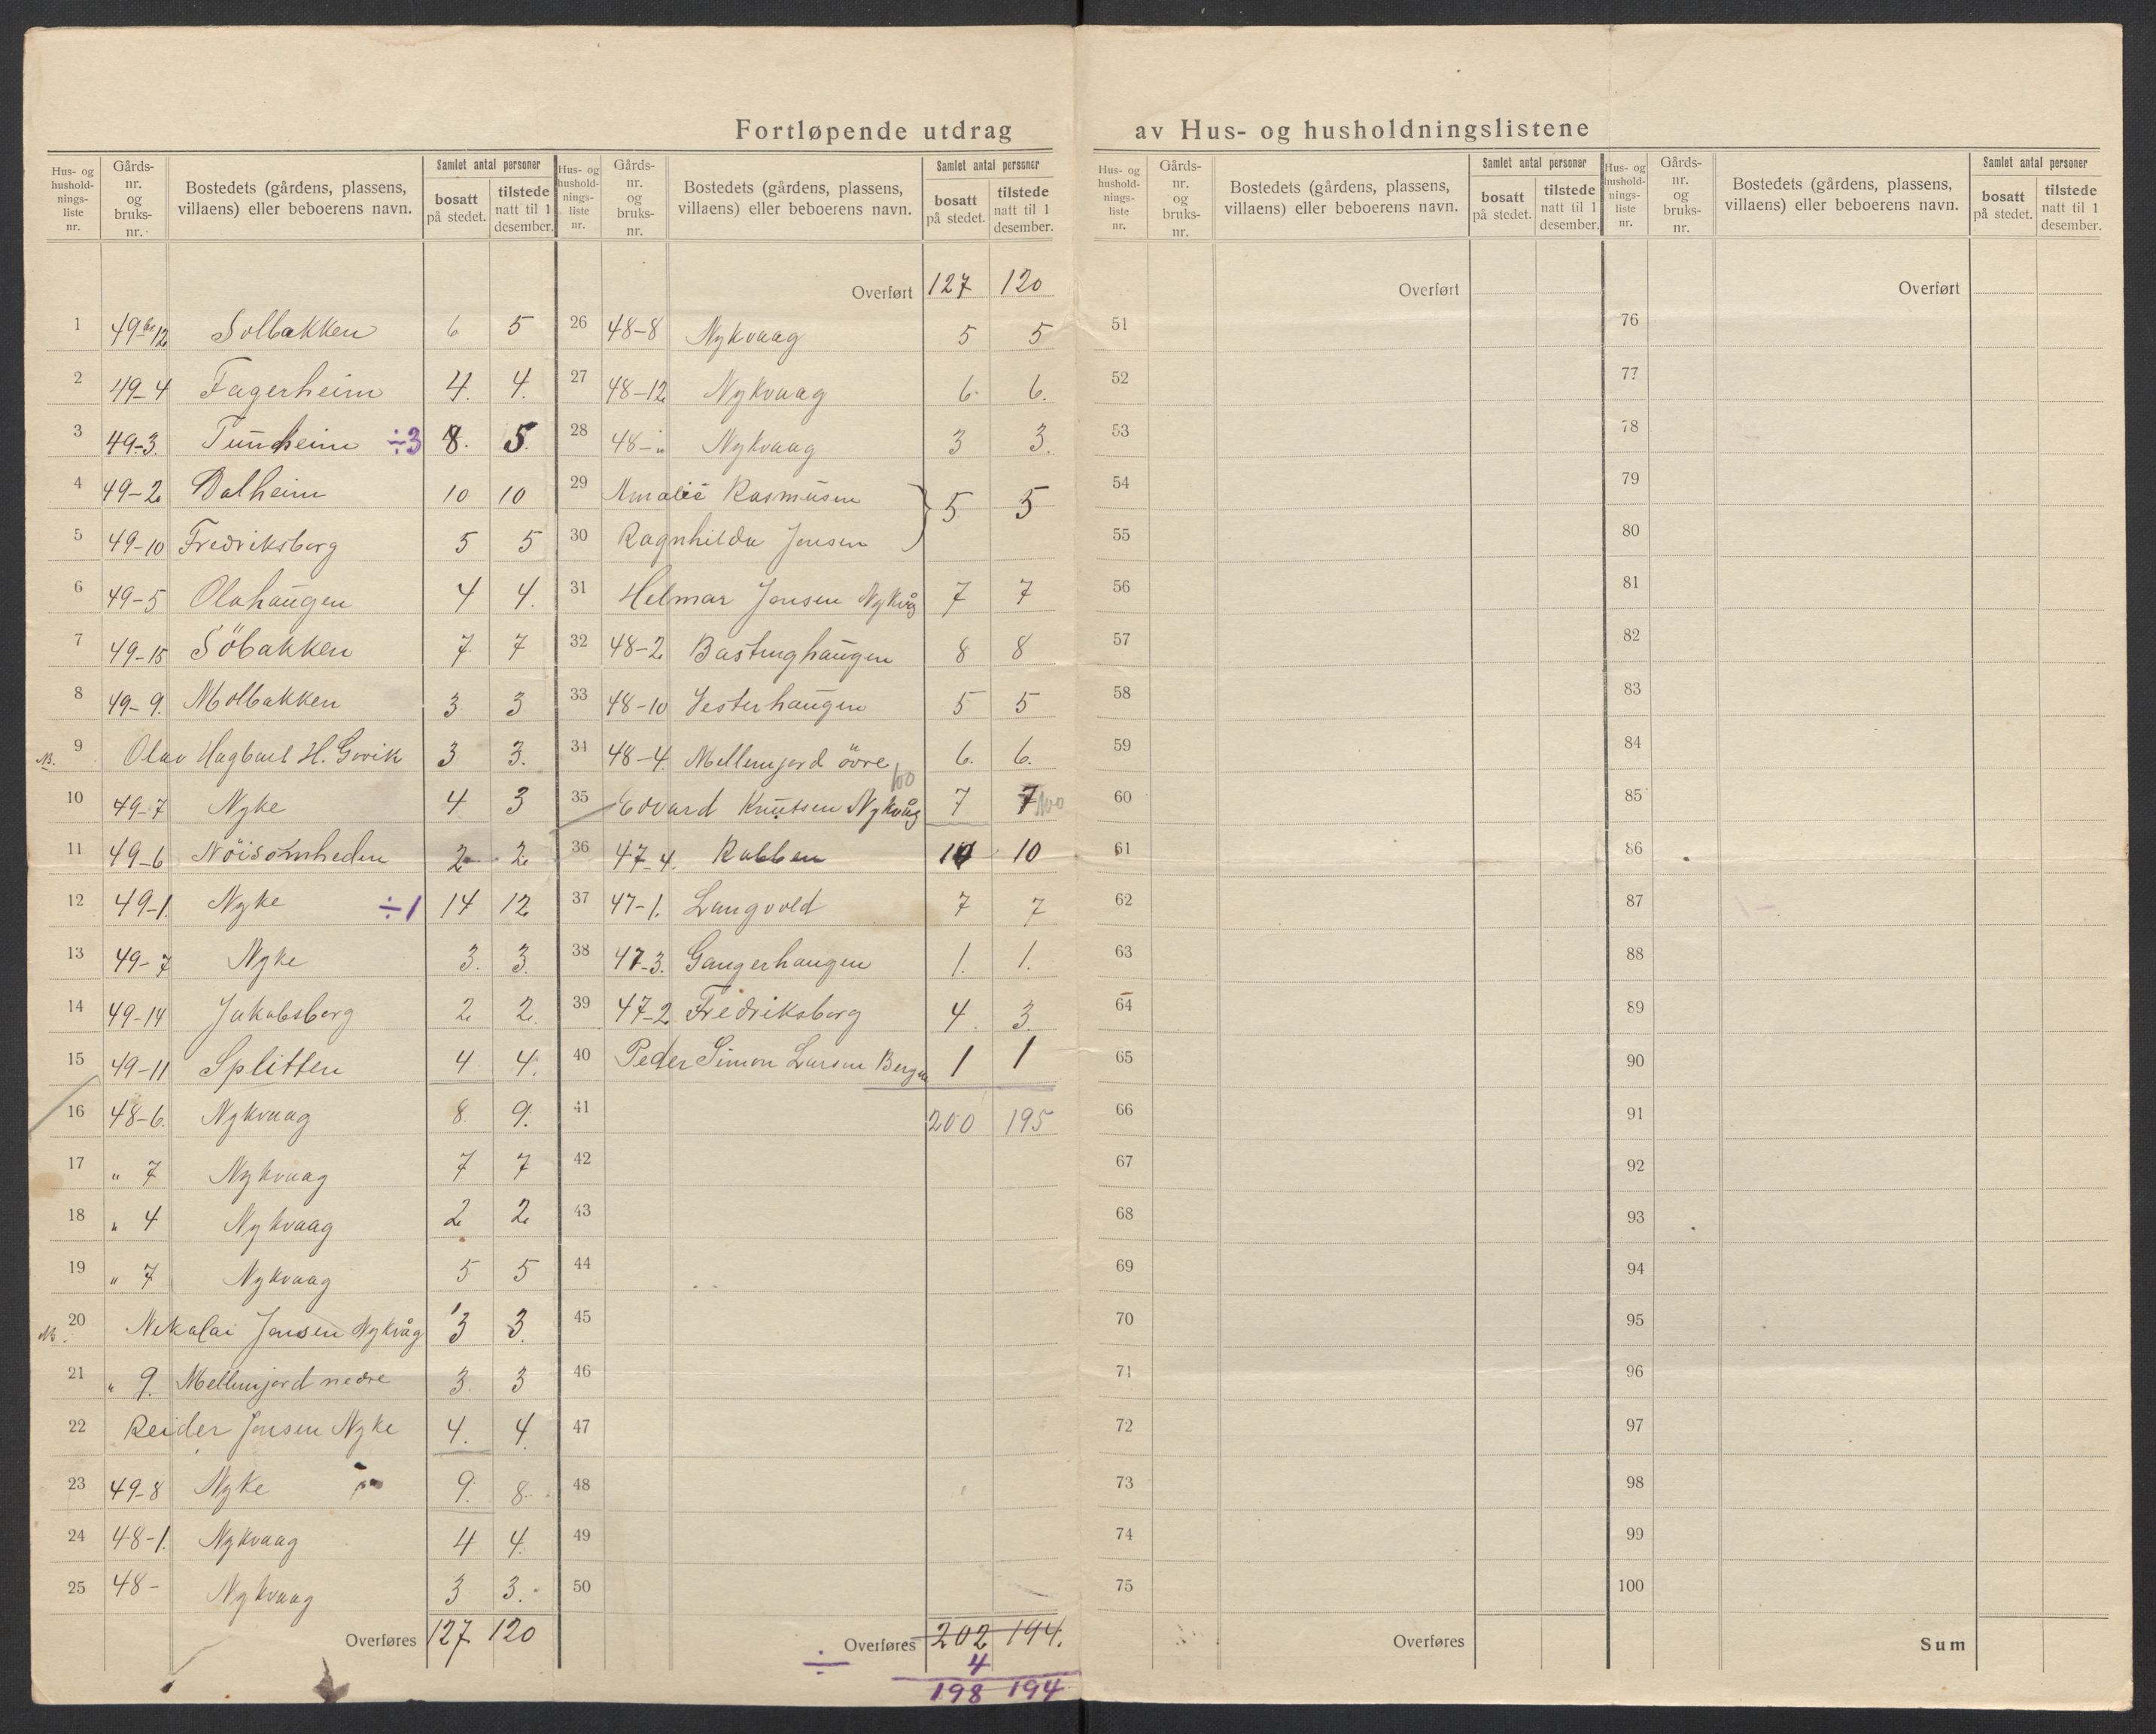 Fortløpende utdrag av Hus- og husholdningslistene
Hus- og husholdningsliste nr. | Gårds- nr. og bruks- nr. | Bostedets (gårdens, plassens, villaens) eller beboerens navn. | Samlet antal personer | bosatt på stedet. | tilstede natt til 1 desember.
1 49 12 Solbakken 6 5
2 49-4 Fagerheim 4. 4.
3 49-3. Tunheim ÷3 8. 5.
4 49-2 Dalheim 10 10
5 49-10 Fredriksborg 5 5
6 49-5 Olahaugen 4 4.
7 49-15 Söbakken 7. 7
8 49-9. Molbakken 3 3
NB. 9 Olav Hagbart H. Govik 3 3.
10 49-7 Nyke 4 3
11 49-6 Nöisomheden 2 2
12 49-1. Nyke ÷1 14 12
13 49-7 Nyke 3. 3.
14 49-14 Jakobsborg 2 2.
15 49-11 Splitten 4 4.
16 48-6. Nykvaag 8. 9.
17 " 7 Nykvaag 7 7
18 " 4 Nykvaag 2 2
19 " 7 Nykvaag 5 5
NB. 20 Nikolai Jensen Nykvåg 3 3.
21 " 9. Mellemjord nedre 3. 3
22 Reider Jensen Nyke 4. 4.
23 49-8 Nyke 9. 8.
24 48-1. Nykvaag 4 4.
25 48- Nykvaag 3 3.
Overføres 127 120
Hus- og husholdningsliste nr. | Gårds- nr. og bruks- nr. | Bostedets (gårdens, plassens, villaens) eller beboerens navn. | Samlet antal personer | bosatt på stedet. | tilstede natt til 1 desember.
Overført 127 120
26 48-8 Nykvaag 5 5
27 48-12 Nykvaag 6. 6.
28 48-" Nykvaag 3 3.
29 Amalie Rasmusen } 5 5
30 Ragnhilda Jensen
31 Helmar Jensen Nykvåg 7 7
32 48-2 Bastinghaugen 8 8
33 48-10 Vesterhaugen 5 5
34 48-4. Mellemjord övre 6. 6.
100
35 Edvard Knutsen Nykvåg 7 7 100
36 47-4. Rabben 10 10
37 47-1. Langvold 7 7
38 47-3. Gangerhaugen 1. 1.
39 47-2 Fredriksborg 4. 3.
40 Peder Simon Larsen 1 1
41 200 195
42
43
44
45
46
47
48
49
50
Overføres 202 194.
÷ 4
198 194
Hus- og husholdningsliste nr. | Gårds- nr. og bruks- nr. | Bostedets (gårdens, plassens, villaens) eller beboerens navn. | Samlet antal personer | bosatt på stedet. | tilstede natt til 1 desember.
Overført
51
52
53
54
55
56
57
58
59
60
61
62
63
64
65
66
67
68
69
70
71
72
73
74
75
Overføres
Hus- og husholdningsliste nr. | Gårds- nr. og bruks- nr. | Bostedets (gårdens, plassens, villaens) eller beboerens navn. | Samlet antal personer | bosatt på stedet. | tilstede natt til 1 desember.
Overført
76
77
78
79
80
81
82
83
84
85
86
87
88
89
90
91
92
93
94
95
96
97
98
99
100
Sum